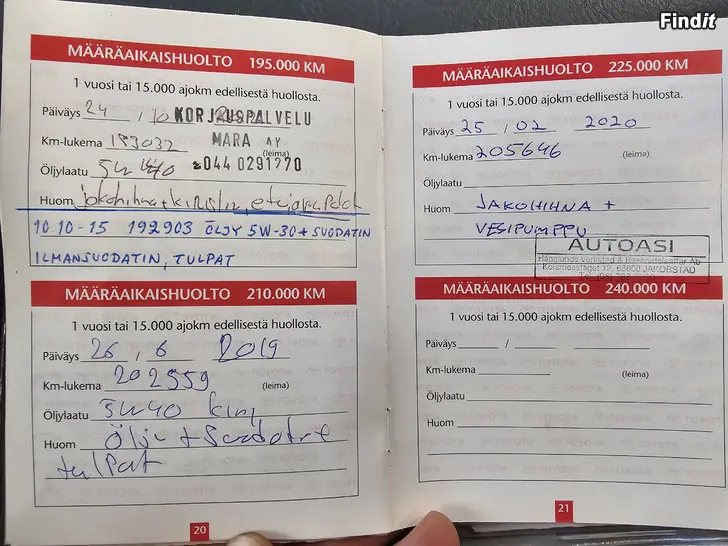 Findit
MÄÄRÄAIKAISHUOLTO 195.000 KM
1 vuosi tai 15.000 ajokm edellisestä huollosta.
Päiväys 24 / 10
KORJAUSPALVELU
MARA AY
Km-lukema 193032 (leima)
☎044 0291770
Öljylaatu 5w 40
Huom jakohihna + kiristin, etujarrupalat
10.10-15 192903 ÖLJY 5W-30 + SUODATIN
ILMANSUODATIN, TULPAT
MÄÄRÄAIKAISHUOLTO 210.000 KM
1 vuosi tai 15.000 ajokm edellisestä huollosta.
Päiväys 26 / 6 2019
Km-lukema 202559 (leima)
Öljylaatu 5w40
Huom Öljy + Suodatin
tulpat
20
MÄÄRÄAIKAISHUOLTO 225.000 KM
1 vuosi tai 15.000 ajokm edellisestä huollosta.
Päiväys 25 / 02 2020
Km-lukema 205646 (leima)
Öljylaatu
Huom JAKOHIHNA +
VESIPUMPPU
AUTOASI
Hägglunds Verkstad & Reservdelsaffär Ab
68600 JAKOBSTAD
MÄÄRÄAIKAISHUOLTO 240.000 KM
1 vuosi tai 15.000 ajokm edellisestä huollosta.
Päiväys /
Km-lukema (leima)
Öljylaatu
Huom
21